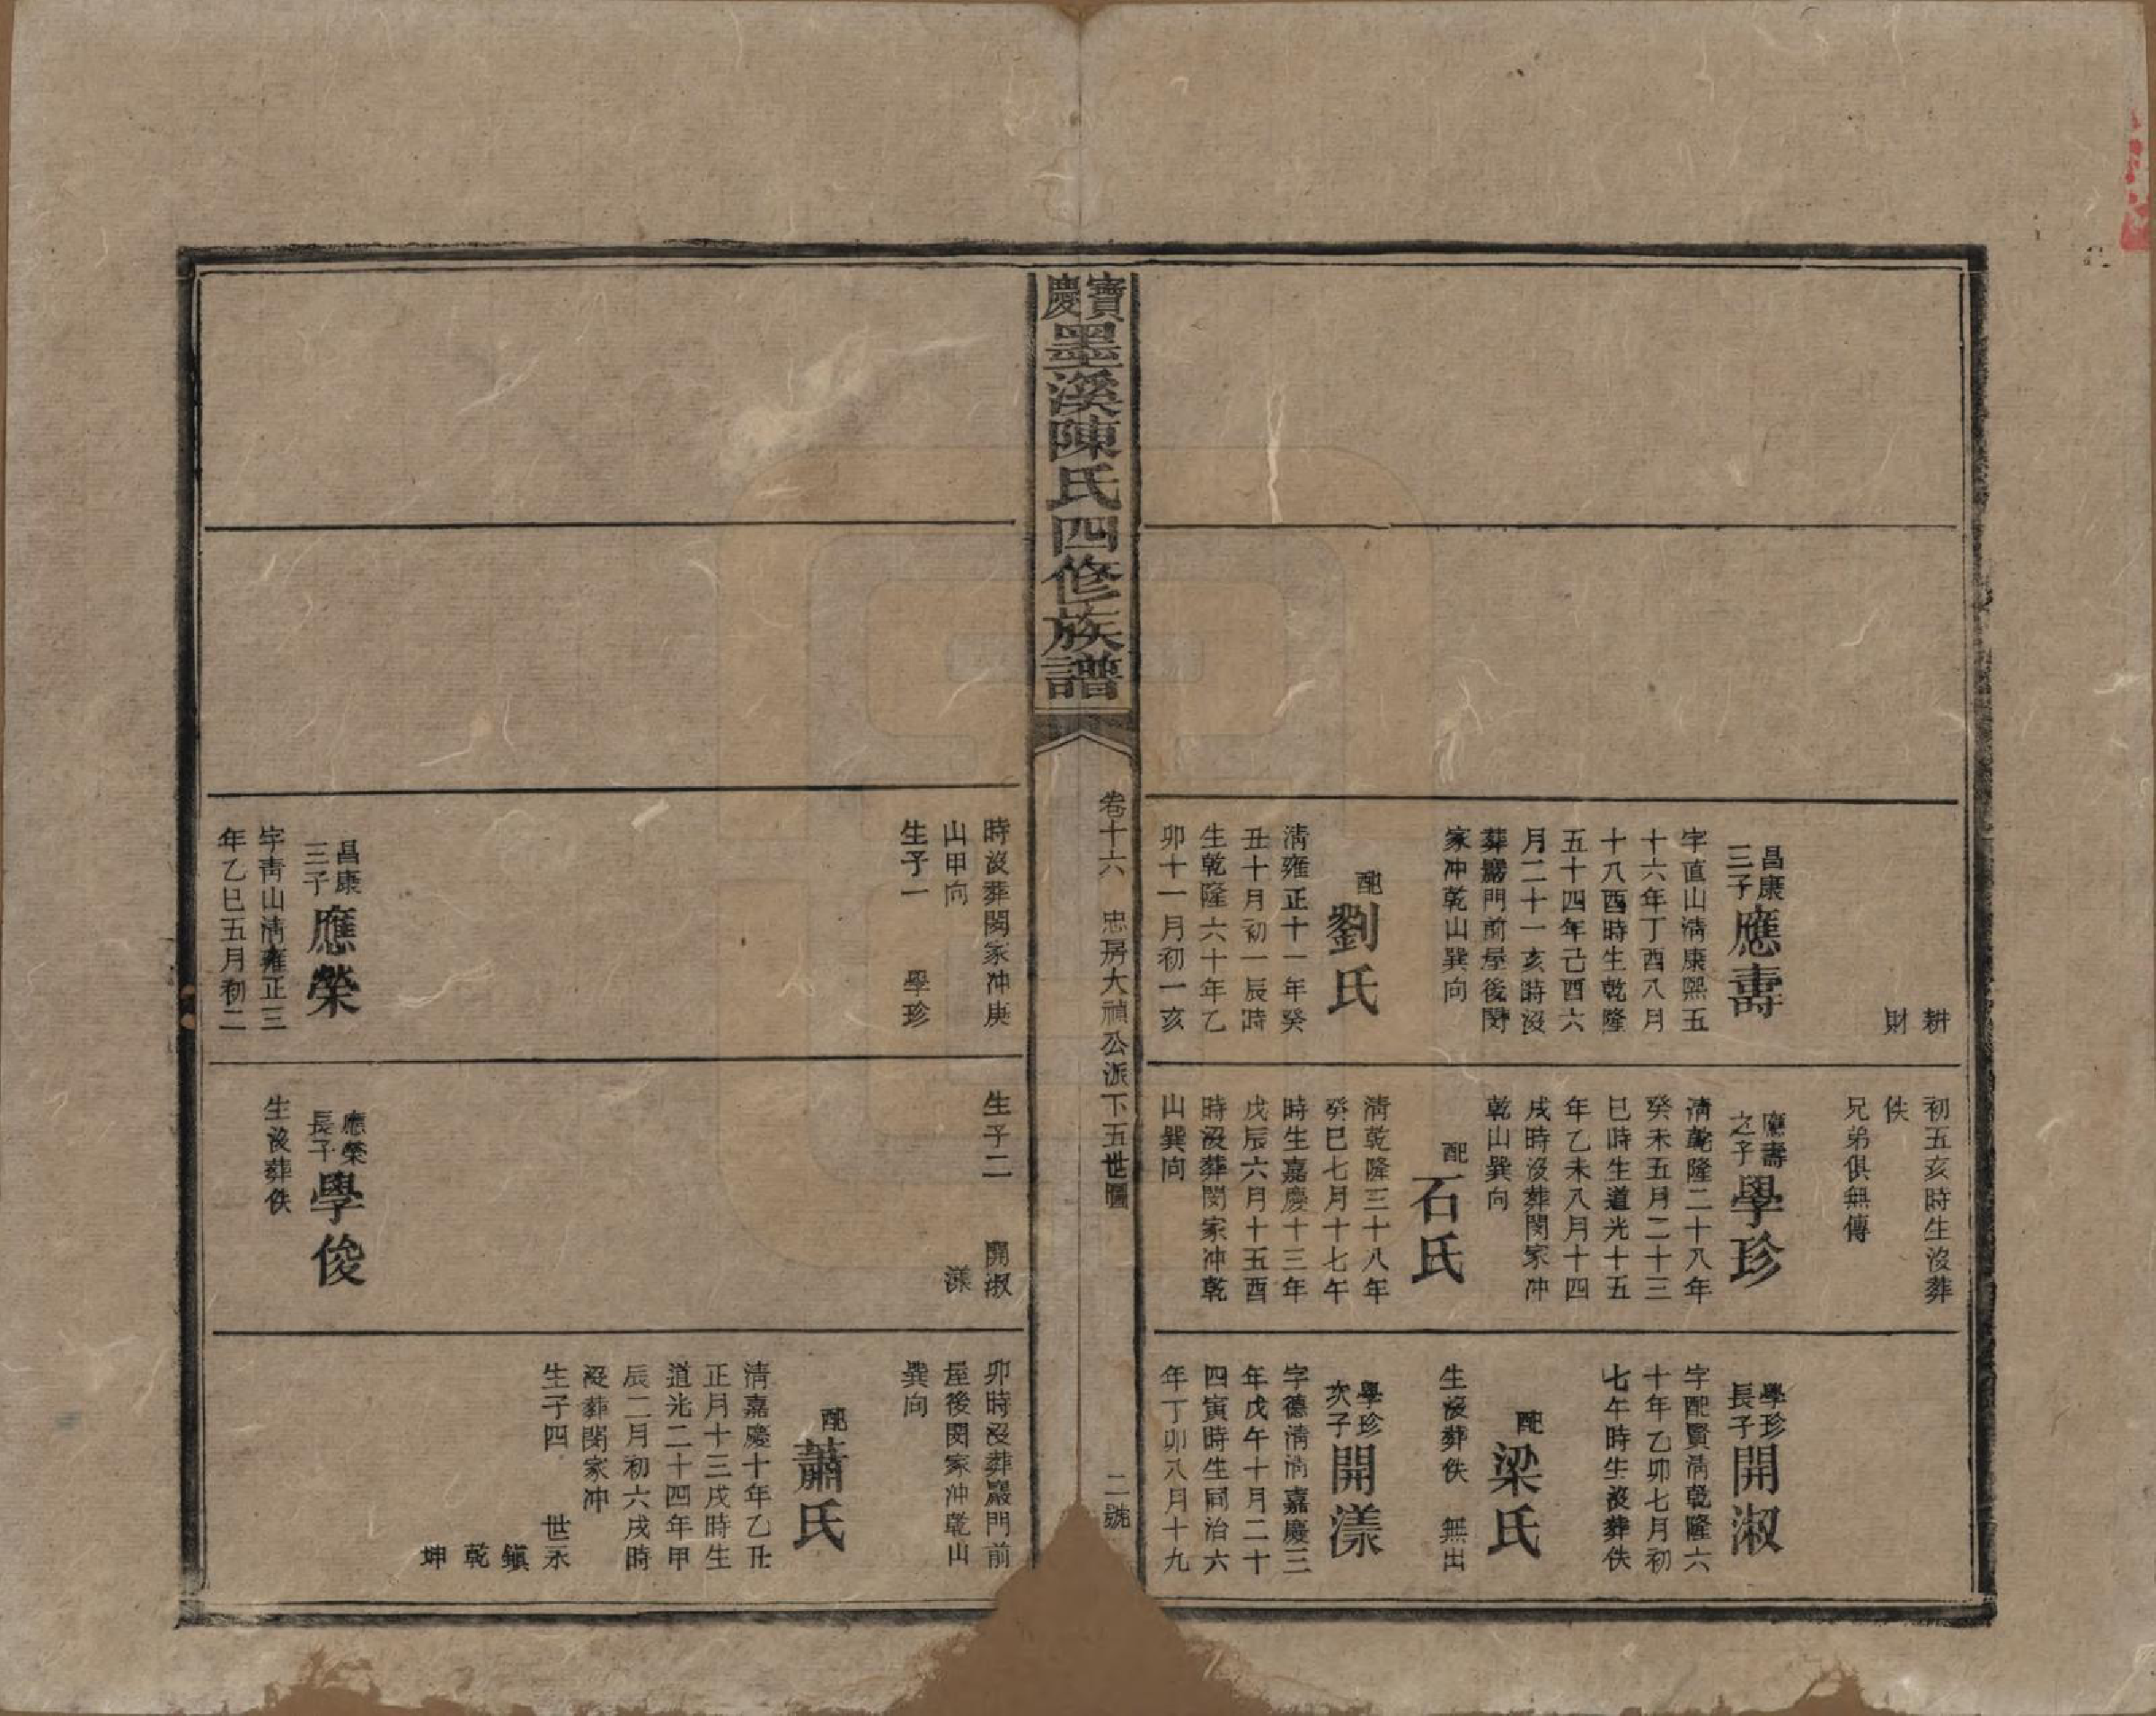 耕
財
昌康
三子
應壽
字直山淸康熙五
十六年丁酉八月
十八酉時生乾隆
五十四年己酉六
月二十一亥時沒
葬巖門前屋後閔
家冲乾山巽向
配
劉氏
淸雍正十一年癸
丑十月初一辰時
生乾隆六十年乙
卯十一月初一亥
初五亥時生沒葬
佚
兄弟俱無傳
應壽
之子
學珍
淸乾隆二十八年
癸未五月二十三
巳時生道光十五
年乙未八月十四
戌時沒葬閔家冲
乾山巽向
配
石氏
淸乾隆三十八年
癸巳七月十七午
時生嘉慶十三年
戊辰六月十五酉
時沒葬閔家冲乾
山巽向
學珍
長子
開淑
字配賢淸乾隆六
十年乙卯七月初
七午時生沒葬佚
配
梁氏
生沒葬佚 無出
學珍
次子
開漾
字德淸淸嘉慶三
年戊午十月二十
四寅時生同治六
年丁卯八月十九
寶慶墨溪陳氏四修族譜
卷十六 忠房大禎公派下五世圖
二號
時沒葬閔家冲庚
山甲向
生子一 學珍
昌康
三子
應榮
字靑山淸雍正三
年乙巳五月初二
生子二 開淑
漾
應榮
長子
學俊
生沒葬佚
卯時沒葬巖門前
屋後閔家冲乾山
巽向
配
蕭氏
淸嘉慶十年乙丑
正月十三戌時生
道光二十四年甲
辰二月初六戌時
沒葬閔家冲
生子四 世永
鎭
乾
坤